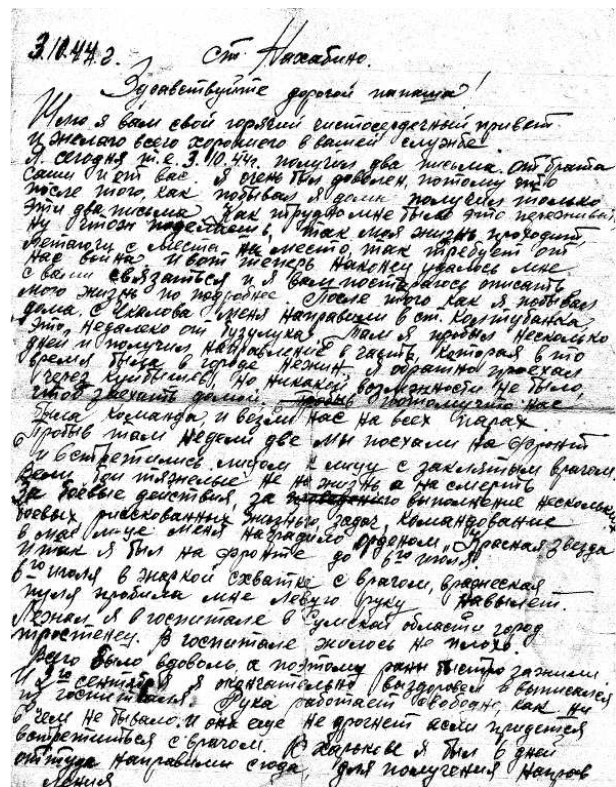 3.10.44г. ст. Нахабино.
Здравствуйте дорогой папаша!
Шлю я вам свой горячий чистосердечный привет.
И желаю всего хорошего в вашей службе
Я сегодня т.е. 3.10.44г. получил два письма от брата
Саши и от вас я очень был доволен, потому что
после того, как побывал я дома получил только
эти два письма. Как трудно мне было это переживать
Ну что поделаешь, так моя жизнь проходит,
с места на место, так требует от
нас война. И вот теперь наконец удалось мне
с вами связаться и я вам постараюсь описать
мою жизнь по подробнее. После того как я побывал
дома. С Чкалова меня направили в ст. Колтубанка,
Это недалеко от Бузулука. Там я пробыл несколько
дней и получил направление в часть, которая в то
время была в городе Нежин. Я обратно проехал
через Куйбышев, но никакой возможности не было,
чтоб заехать домой, потому что нас
была команда и везли нас на всех парах
Пробыв там недели две мы поехали на фронт
и встретились лицом к лицу с заклятым врагом
Вели бои тяжелые не на жизнь а на смерть
За боевые действия, за выполнение нескольких
боевых рискованных жизнью, задач, командование
в мае м-це меня наградило орденом „Красная звезда
Итак я был на фронте до 6го июля
6го июля в жаркой схватке с врагом, вражеская
пуля пробила мне левую руку навылет.
Лежал я в госпитале в Сумской области город
Тростенец. В госпитале жилось не плохо.
Всего было вдоволь, а поэтому раны быстро зажили
И сентября я окончательно выздоровел и выписался
из госпиталя. Рука работает свободно, как ни
в чем не бывало. И она еще не дрогнет если придется
встретиться с врагом. В Харькове я был 6 дней
оттуда направили сюда, для получения направ
ления